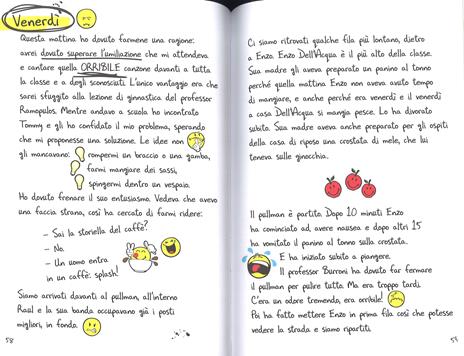 Venerdì
Questa mattina ho dovuto farmene una ragione:
avrei dovuto superare l'umiliazione che mi attendeva
e cantare quella ORRIBILE canzone davanti a tutta
la classe e a degli sconosciuti. L'unico vantaggio era che
sarei sfuggito alla lezione di ginnastica del professor
Romopulos. Mentre andavo a scuola ho incontrato
Tommy e gli ho confidato il mio problema, sperando
che mi proponesse una soluzione. Le idee non
gli mancavano: rompermi un braccio o una gamba,
farmi mangiare dei sassi,
spingermi dentro un vespaio.
Ho dovuto frenare il suo entusiasmo. Vedeva che avevo
una faccia strana, così ha cercato di farmi ridere:
– Sai la storiella del caffè?
– No.
– Un uomo entra
in un caffè: splash!
Siamo arrivati davanti al pullman, all'interno
Raul e la sua banda occupavano già i posti
migliori, in fondo.
58
Ci siamo ritrovati qualche fila più lontano, dietro
a Enzo. Enzo Dell'Acqua è il più alto della classe.
Sua madre gli aveva preparato un panino al tonno
perché quella mattina Enzo non aveva avuto tempo
di mangiare, e anche perché era venerdì e il venerdì
a casa Dell'Acqua si mangia pesce. Lo ha divorato
subito. Sua madre aveva anche preparato per gli ospiti
della casa di riposo una crostata di mele, che lui
teneva sulle ginocchia.
Il pullman è partito. Dopo 10 minuti Enzo
ha cominciato ad avere nausea e dopo altri 15
ha vomitato il panino al tonno sulla crostata.
E ha iniziato subito a piangere.
Il professor Burroni ha dovuto far fermare
il pullman per pulire tutto. Ma era troppo tardi.
C'era un odore tremendo, era orribile!
Poi ha fatto mettere Enzo in prima fila così che potesse
vedere la strada e siamo ripartiti.
59